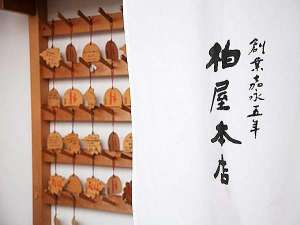 創業嘉永五年
柏屋本店